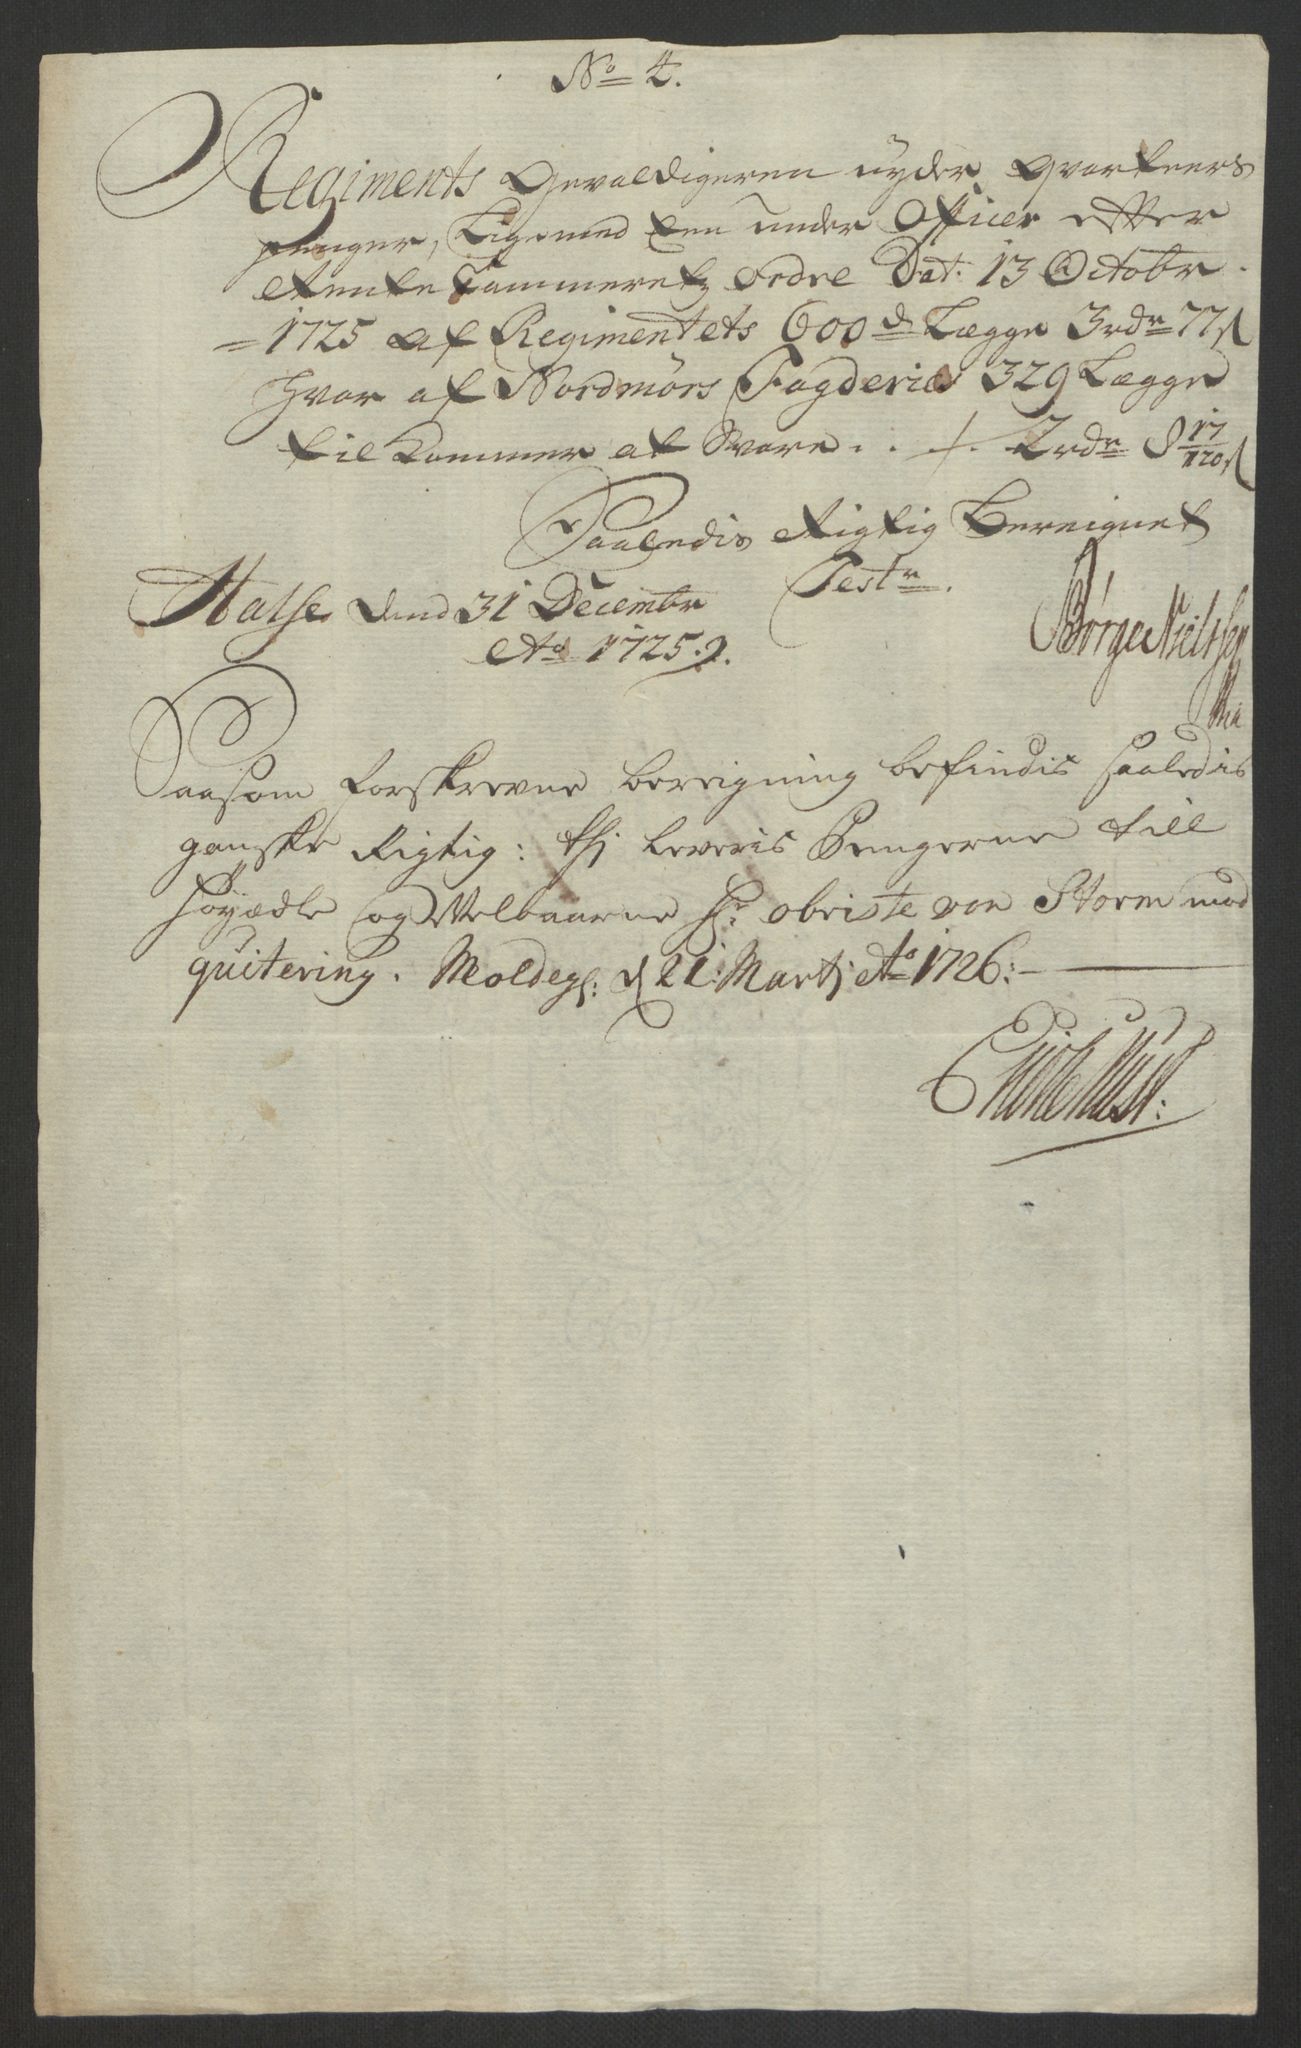 No 4.
Regiments Gevaldigeren nyder Qvarteers
penger, Ligemed Een under Officer efter
Rente Cammeretz Ordre Dat: 13 Octobr
1725 af Regimentets 600de Lægge 3 rdr 77 s
hvor af Nordmörs Fogderies 329 Lægge
til kommer at Svare . . ./. 2 rdr 8 17/120 s
Saaledis Rigtig Bereignet
Halse dend 31 Decembr Testr.
Ao 1725.
Børge Nielsen
Saasom forskrevne bereigning befindis saaledis
ganske Rigtig: thj leveris Pengerne till
høyædle og Velbaarne Hr. obriste von Storm mod
quitering. Moldeg: d 21: Martj Ao 1726: